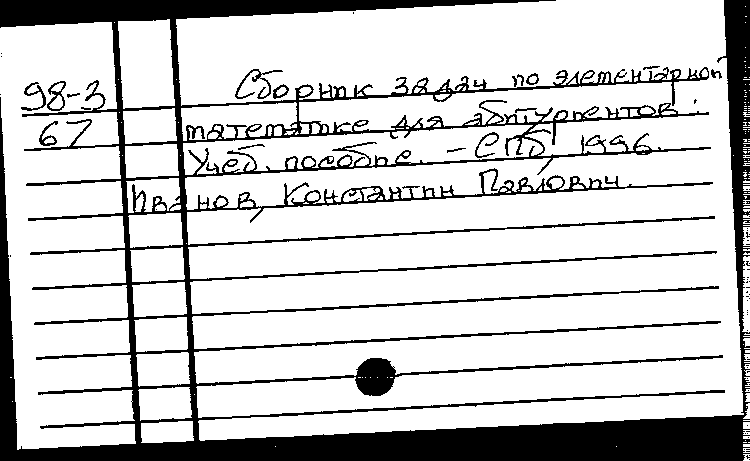 98-3 Сборник задач по элементарной
67 математике для абитуриентов :
Учеб. пособие. – СПб, 1996.
Иванов, Константин Павлович.